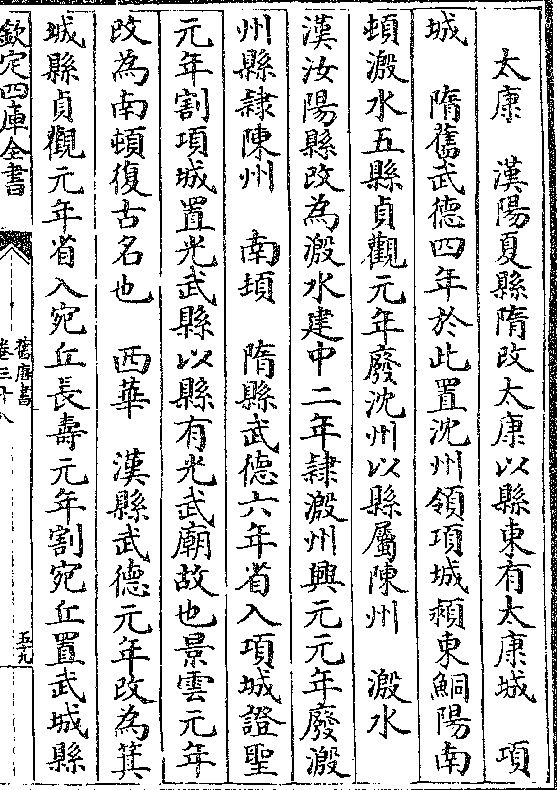 太康　漢陽夏縣隋改太康以縣東有太康城　項
城　隋舊武德四年於此置沈州領項城潁東鮦陽南
頓溵水五縣貞觀元年廢沈州以縣屬陳州　溵水
漢汝陽縣改為溵水建中二年隸溵州興元元年廢溵
州縣隸陳州　南頓　隋縣武德六年省入項城證聖
元年割項城置光武縣以縣有光武廟故也景雲元年
改為南頓復古名也　西華　漢縣武德元年改為箕
城縣貞觀元年省入宛丘長壽元年割宛丘置武城縣
欽定四庫全書
舊唐書
卷三十八
五十九